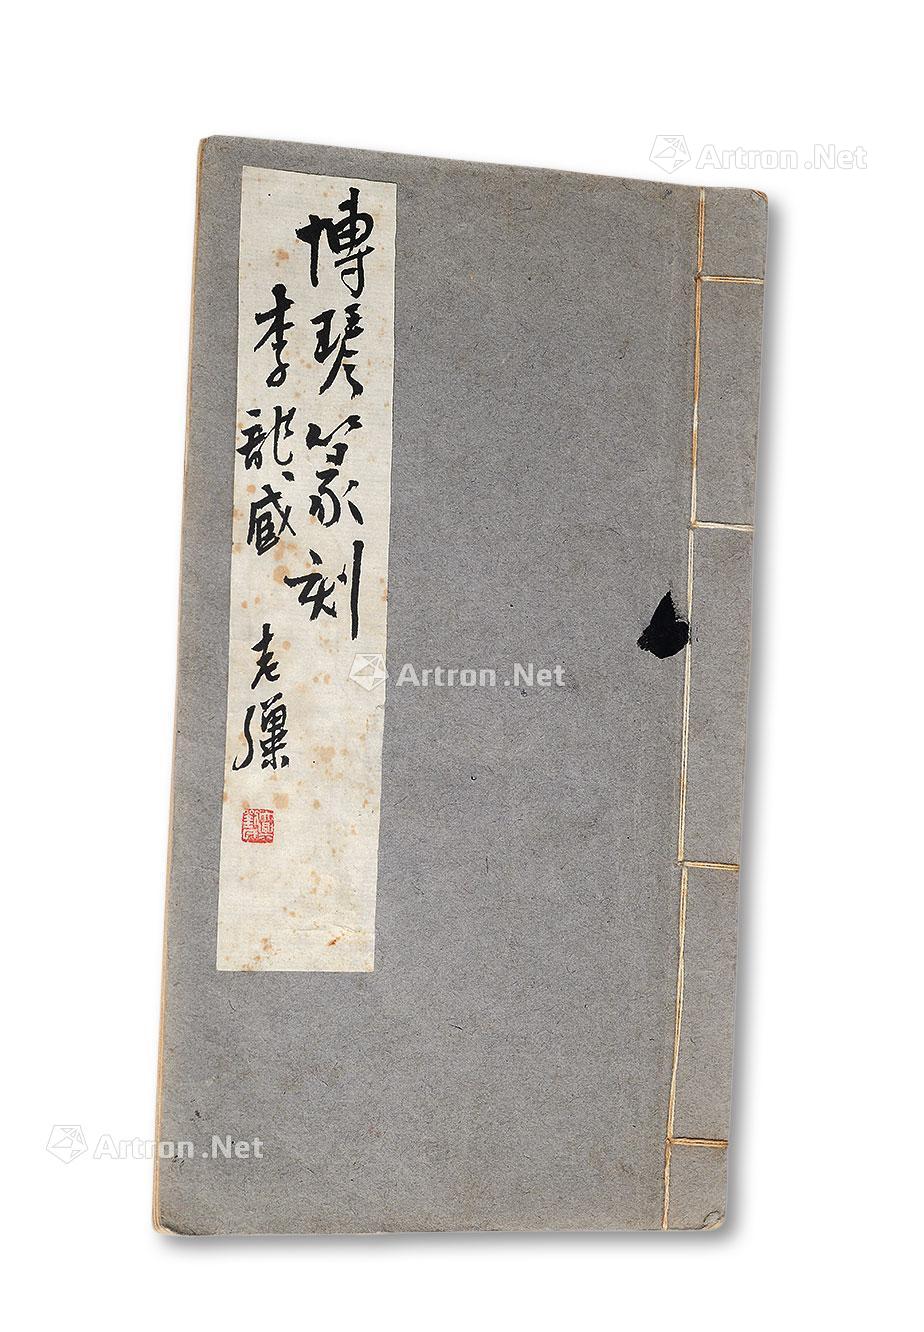 博琴篆刻
李龍、藏
老彈
Artron.Net
Artron.Net
Artron.Net